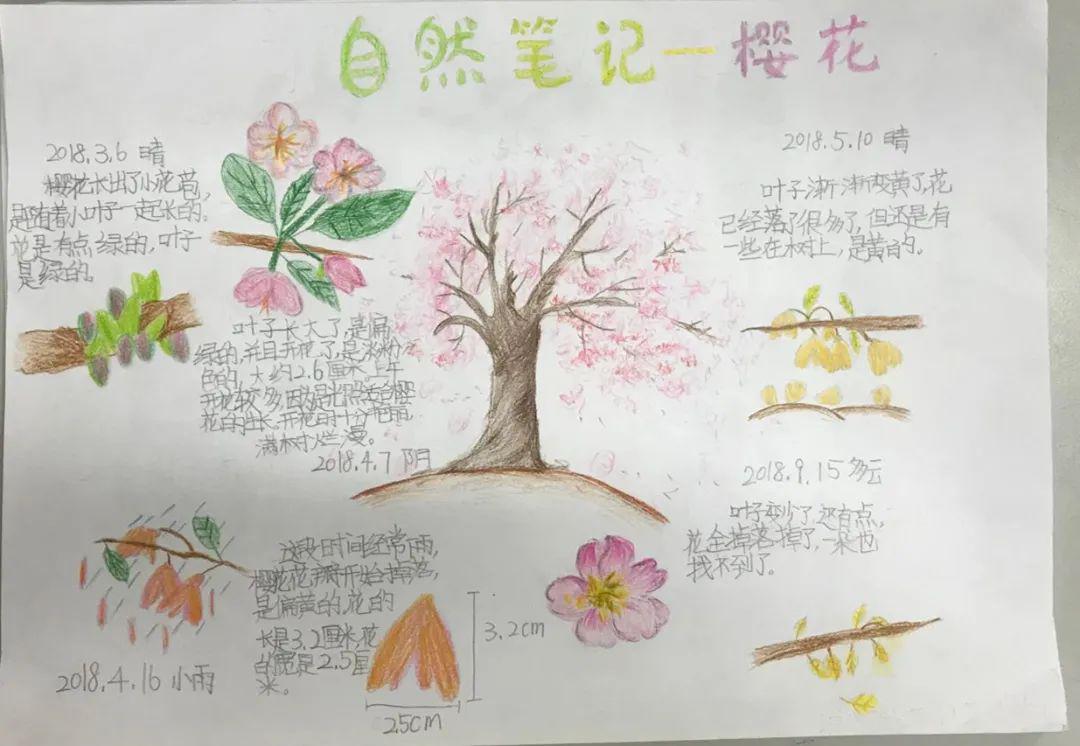 自然笔记一樱花
2018.3.6 晴
樱花长出了小花苞,
是随着小叶子一起长的。
花是有点绿的,叶子
是绿的。
叶子长大了,是偏
绿的,并且开花了,是淡粉
色的,大约2.6厘米,上午
开花较多,因为是比照适合樱
花的生长,开花的十分艳丽
满树烂漫。
2018.4.7 阴
这段时间经常下雨,
樱花花瓣开始掉落,
是偏黄的,花的
长是3.2厘米,花
的宽是2.5厘
米。
3.2cm
2.5cm
2018.4.16 小雨
2018.5.10 晴
叶子渐渐变黄了,花
已经落了很多了,但还是有
一些在树上,是黄白的。
2018.9.15 多云
叶子变少了,还有点,
花全掉落掉了,一朵也
找不到了。